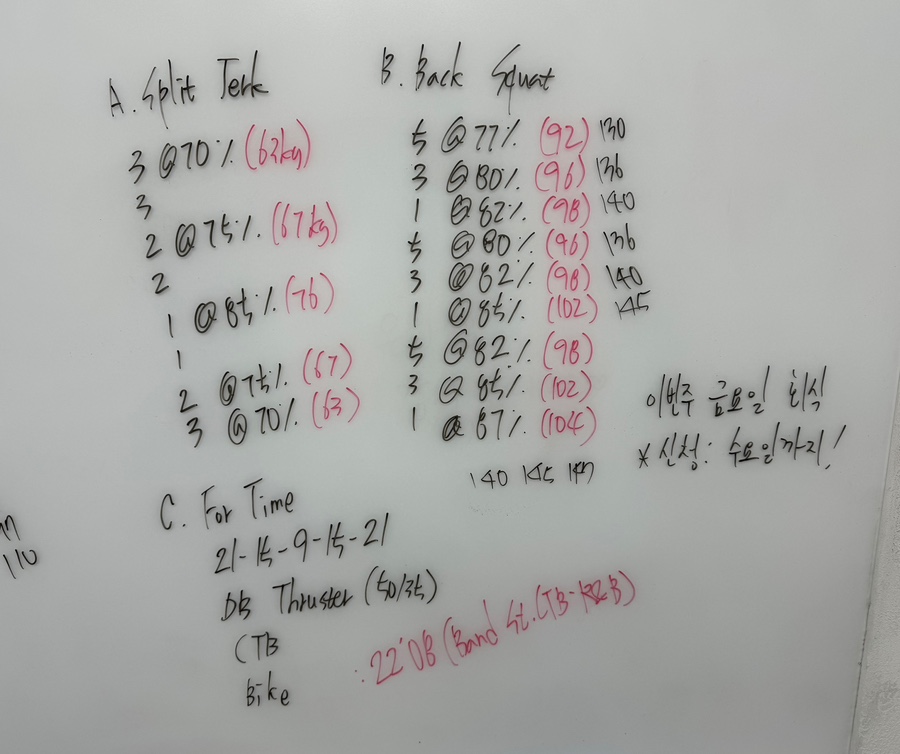 A. Split Jerk
3 @70% (63kg)
3
2 @75%. (67kg)
2
1 @85% (76)
1
2 @75%. (67)
3 @70% (63)
B. Back Squat
5 @77%. (92) 130
3 @80%. (96) 136
1 @82%. (98) 140
5 @80%. (96) 136
3 @82%. (98) 140
1 @85%. (102) 145
5 @82%. (98)
3 @85%. (102)
1 @87%. (104)
140 145 147
이번주 금요일 회식
*신청: 수요일까지!
C. For Time
21-15-9-15-21
DB Thruster (50/35)
CTB
Bike
: 22'08 (Band St. CTB-
110